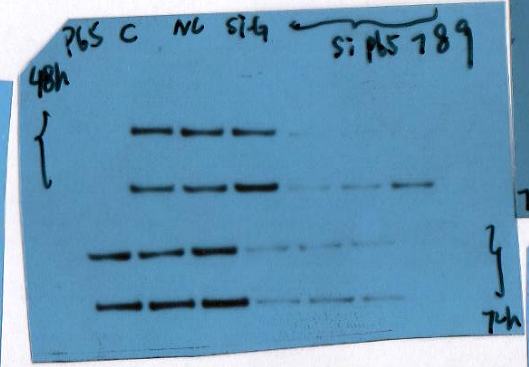 P65 C NC siG si p65 7 8 9
48h
72h